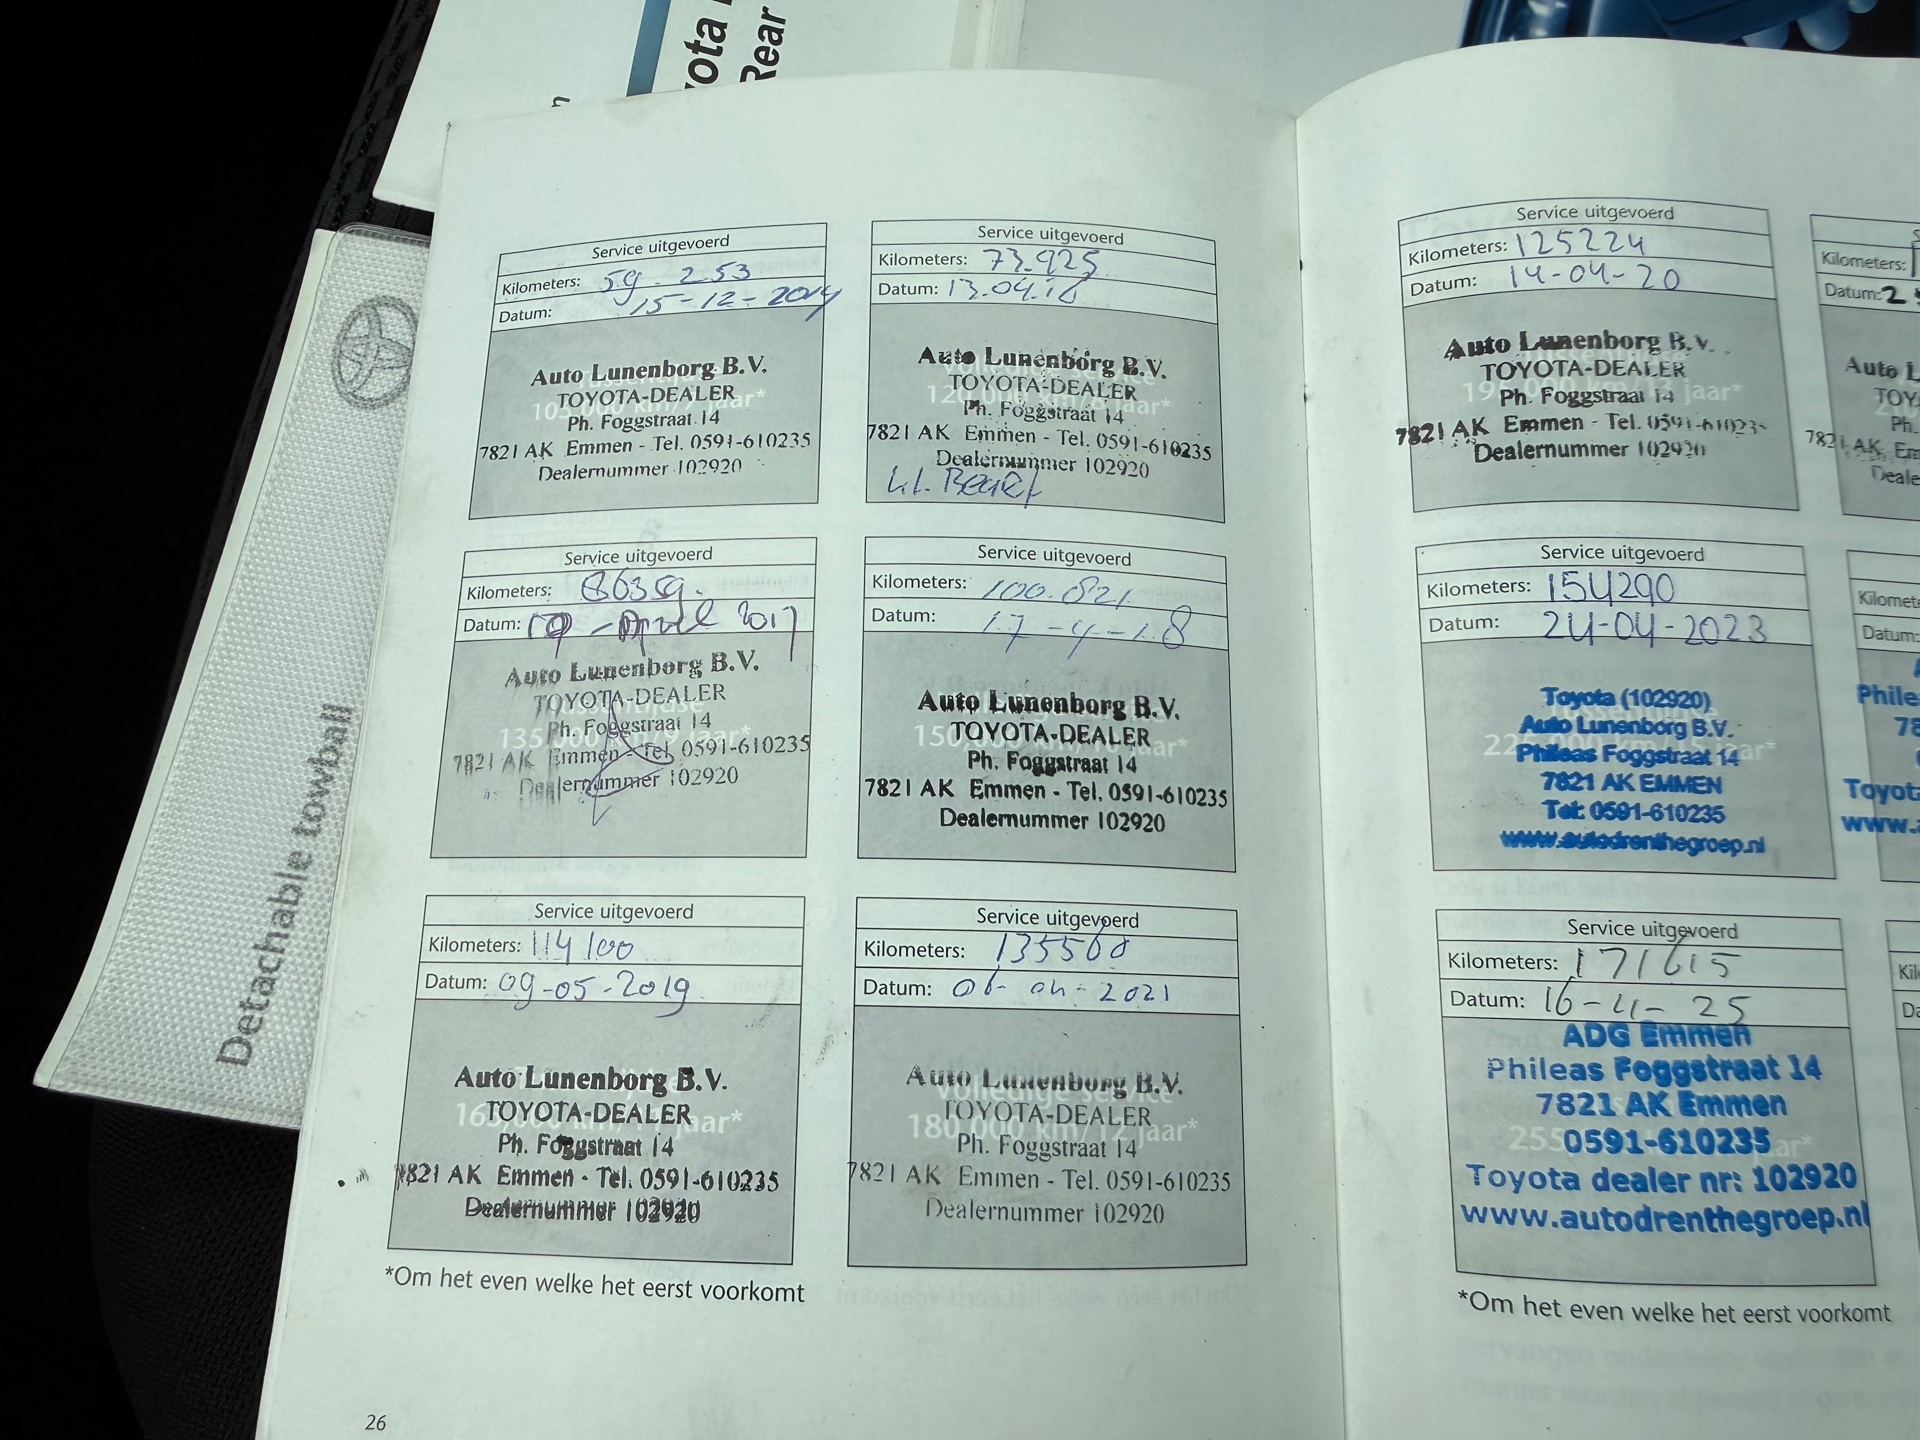 Rear
Detachable towball
Service uitgevoerd
Kilometers: 59.253
Datum: 15-12-2014
Auto Lunenborg B.V.
TOYOTA-DEALER
Ph. Foggstraat 14
7821 AK Emmen - Tel. 0591-610235
Dealernummer 102920
105,000 km/7 jaar*
Service uitgevoerd
Kilometers: 73.925
Datum: 13.04.16
Auto Lunenborg B.V.
TOYOTA-DEALER
Ph. Foggstraat 14
7821 AK Emmen - Tel. 0591-610235
Dealernummer 102920
Volledige service
120,000 km/8 jaar*
Service uitgevoerd
Kilometers: 86359.
Datum: April 2017
Auto Lunenborg B.V.
TOYOTA-DEALER
Ph. Foggstraat 14
7821 AK Emmen - Tel. 0591-610235
Dealernummer 102920
135,000 km/9 jaar*
Service uitgevoerd
Kilometers: 100.821
Datum: 17-4-18
Auto Lunenborg B.V.
TOYOTA-DEALER
Ph. Foggstraat 14
7821 AK Emmen - Tel. 0591-610235
Dealernummer 102920
150,000 km/10 jaar*
Service uitgevoerd
Kilometers: 114100
Datum: 09-05-2019
Auto Lunenborg B.V.
TOYOTA-DEALER
Ph. Foggstraat 14
7821 AK Emmen - Tel. 0591-610235
Dealernummer 102920
165,000 km/11 jaar*
Service uitgevoerd
Kilometers: 135560
Datum: 06-04-2021
Auto Lunenborg B.V.
TOYOTA-DEALER
Ph. Foggstraat 14
7821 AK Emmen - Tel. 0591-610235
Dealernummer 102920
Volledige service
180,000 km/12 jaar*
*Om het even welke het eerst voorkomt
26
Service uitgevoerd
Kilometers: 125224
Datum: 14-04-20
Auto Lunenborg B.V.
TOYOTA-DEALER
Ph. Foggstraat 14
7821 AK Emmen - Tel. 0591-610235
Dealernummer 102920
195,000 km/13 jaar*
Service uitgevoerd
Kilometers: 154290
Datum: 24-04-2023
Toyota (102920)
Auto Lunenborg B.V.
Phileas Foggstraat 14
7821 AK EMMEN
Tel: 0591-610235
www.autodrenthegroep.nl
Service uitgevoerd
Kilometers: 171615
Datum: 16-4-25
ADG Emmen
Phileas Foggstraat 14
7821 AK Emmen
0591-610235
Toyota dealer nr: 102920
www.autodrenthegroep.nl
*Om het even welke het eerst voorkomt
Kilometers:
Datum: